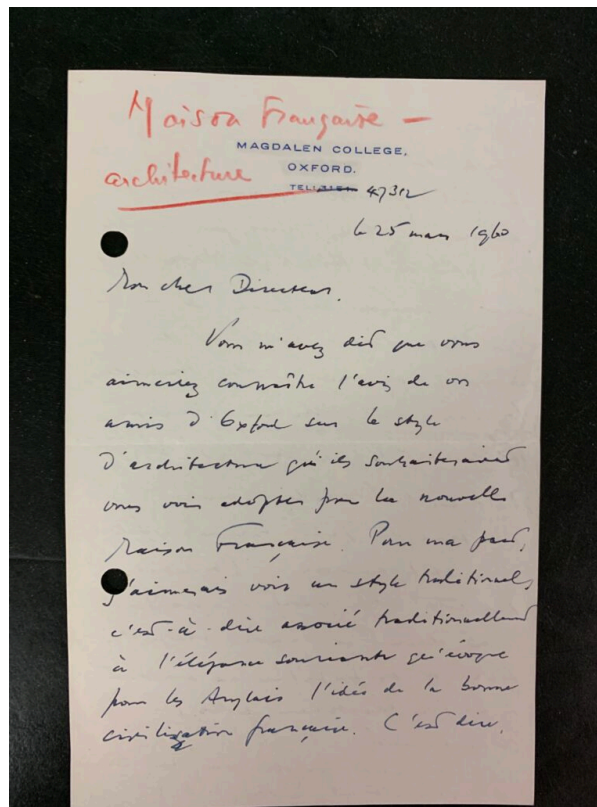 Maison Française –
MAGDALEN COLLEGE,
architecture
OXFORD.
47312
le 25 mars 1960
Mon cher Directeur.
Vous m'avez dit que vous
aimeriez connaître l'avis de vos
amis d'Oxford sur le style
d'architecture qu'ils souhaiteraient
vous voir adopter pour la nouvelle
Maison Française. Pour ma part,
j'aimerais voir un style traditionnel,
c'est-à-dire associé traditionnellement
à l'élégance souriante qu'évoque
pour les Anglais l'idée de la bonne
civilisation française. C'est dire,